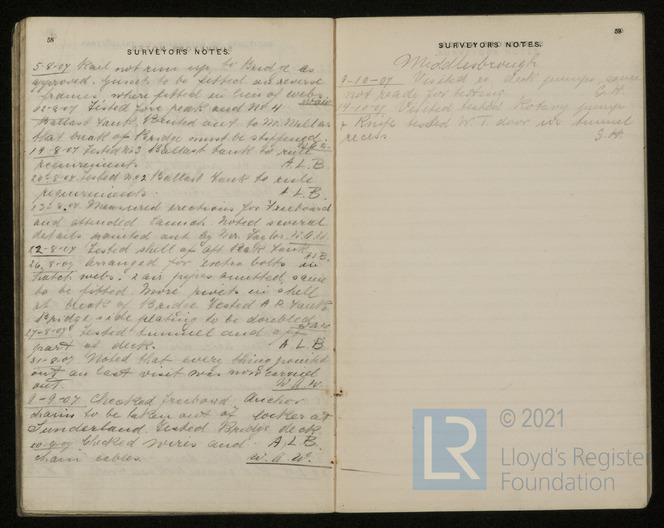 58
SURVEYORS NOTES.
5-8-07 Keel not run up to Bridge as
approved. Gussets to be fitted on reverse
frames, where fitted in lieu of webs.
W.A.W.
12-8-07 Tested fore peak and No. 4
Ballast Tank, Pointed out to Mr. Millar
that break of Bridge must be stiffened.
19-8-07 Tested No 3 Ballast tank to rule
requirements. A.L.B.
20-8-07 Tested No. 2 Ballast Tank to rule
requirements. A.L.B.
Measured erections for Freeboard
and attended Launch. Noted several
details pointed out by Mr. Taylor. W.A.W.
22-8-07 Tested shell of Aft Peak Tank
A.L.B.
26.8-07 arranged for extra bolts in
hatch webs. 2 air pipes omitted, same
to be fitted. More rivets in shell
at break of Bridge. Tested A.P. Tank.
Bridge side plating to be doubled.
27-8-07 Tested tunnel and aft
part of deck. A.L.B.
31-8-07 Noted that every thing pointed
out on last visit was now carried
out. W.A.W.
9-9-07 Checked freeboard. Anchor
chains to be taken out of locker at
Sunderland. Tested Bridge deck
10-9-07 Checked wires and A.L.B.
chain cables. W.A.W.
59
SURVEYORS NOTES.
Middlesbrough
9-10-07 Visited re deck pumps, same
not ready for testing. G.H.
14-10-07 Visited tested Rotary pumps
& Kings tested W.T. door in tunnel
recess. G.H.
© 2021
LR
Lloyd's Register
Foundation